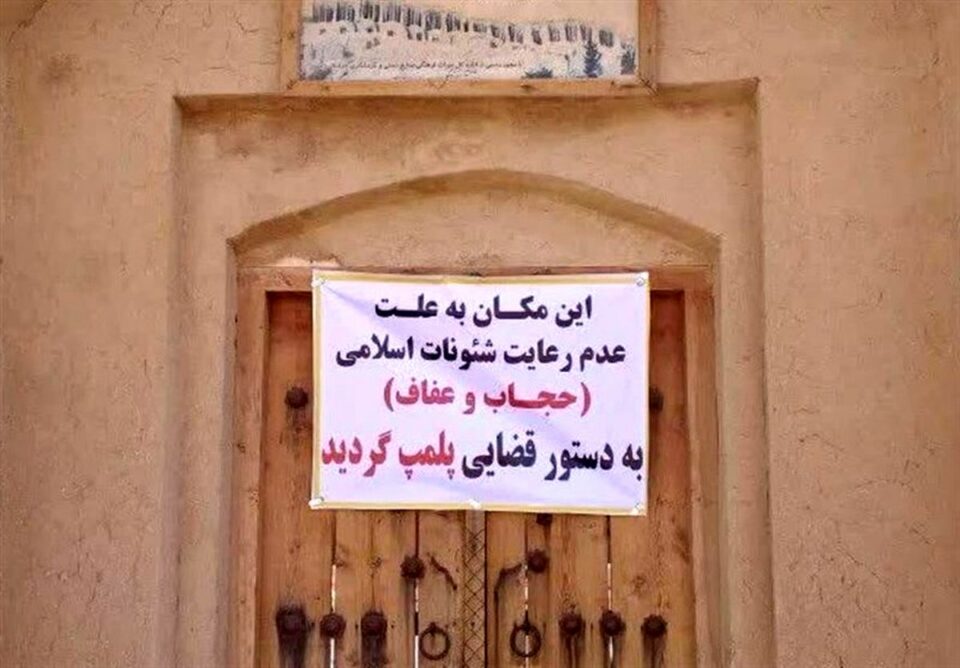 این مکان به علت
عدم رعایت شئونات اسلامی
(حجاب و عفاف)
به دستور قضایی پلمپ گردید